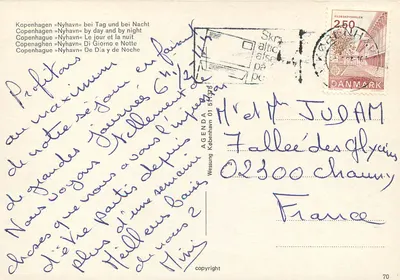 Kopenhagen »Nyhavn« bei Tag und bei Nacht
Copenhagen »Nyhavn« by day and by night
Copenhague »Nyhavn« Le jour et la nuit
Copenaghen »Nyhavn« Di Giorno e Notte
Copenhague »Nyhavn« De Dia y de Noche
Profitons
au maximum
de notre séjour en faisant
de grandes journées 6H/2
Nous voyons tellement de
choses que nous avons l'impression
d'être partis depuis
plus d'une semaine
Meilleurs baisers
de nous 2
Mimi
AGENDA
København
250
DANMARK
KØBENHAVN
M et Mme JUDAM
7 allée des glycines
02300 Chauny
France
copyright
70